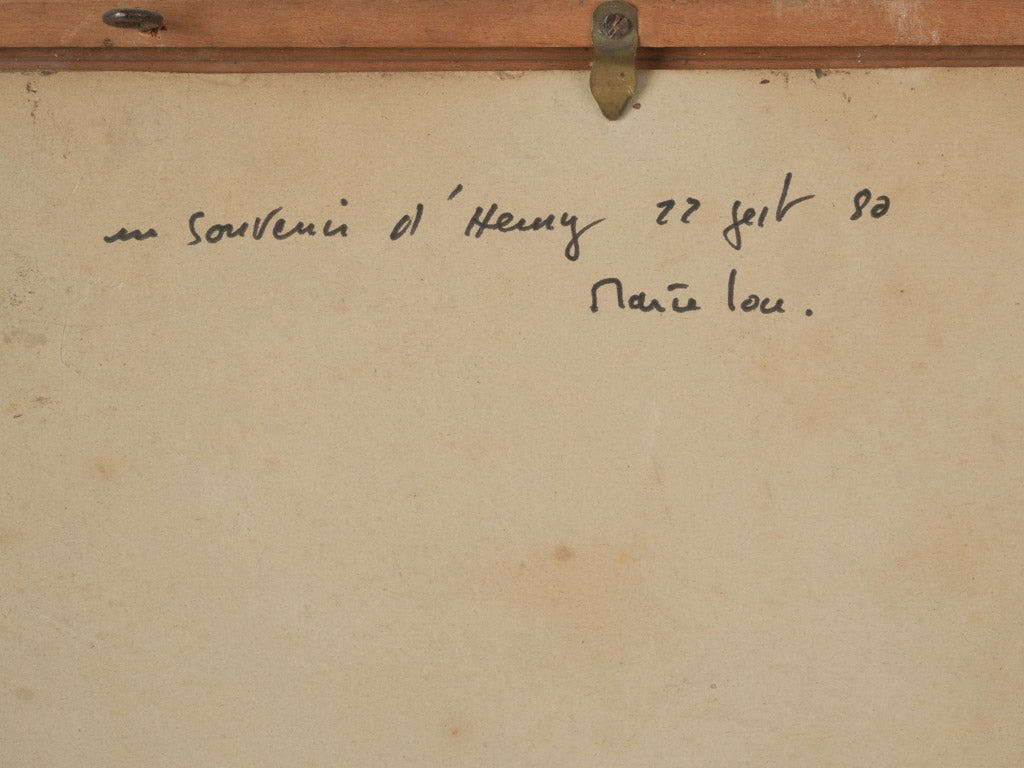 en souvenir d'Henry 22 sept 80
Marie lou.